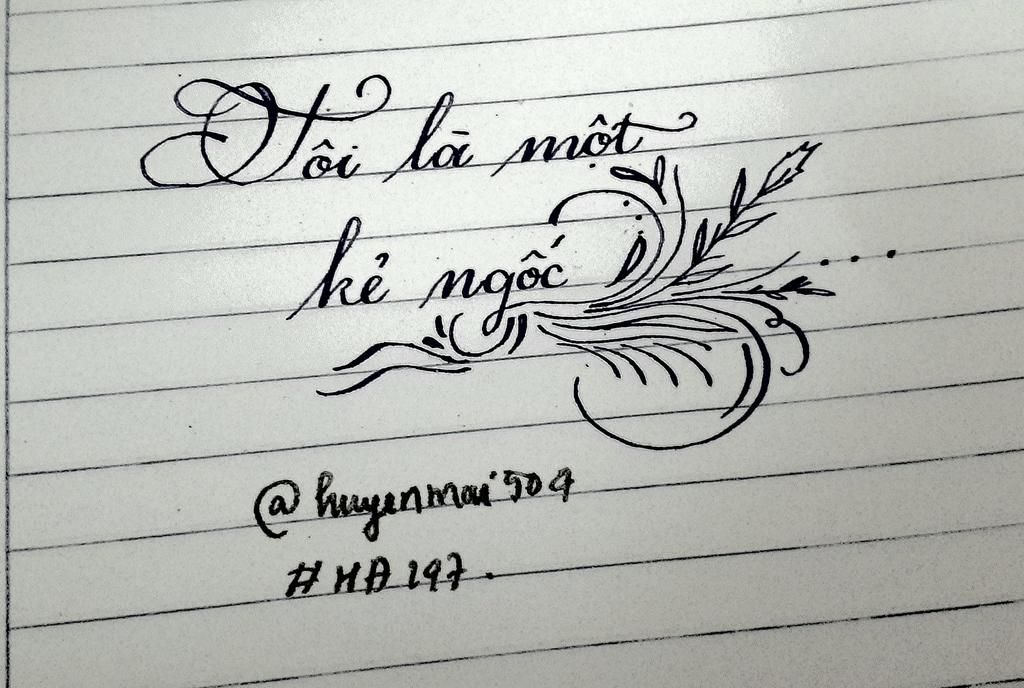 Tôi là một
kẻ ngốc ...
@huyenmai504
#HA197.